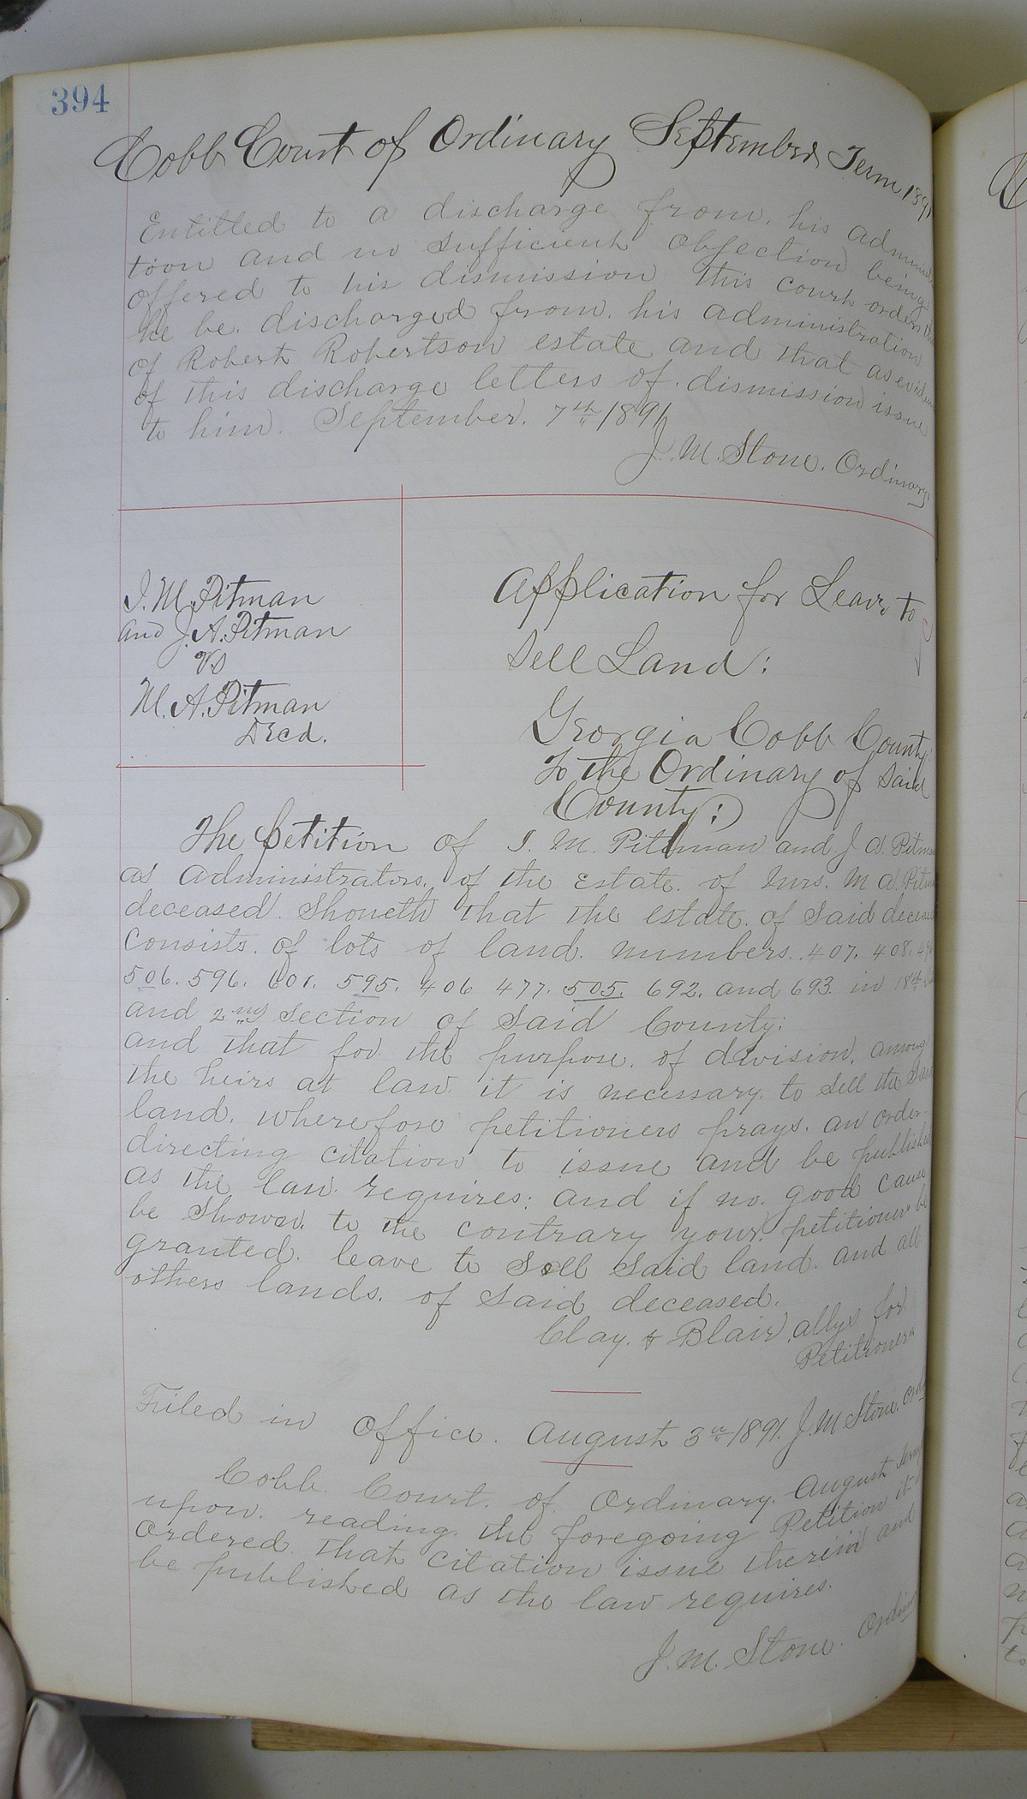 394
Cobb Court of Ordinary September Term 1891
Entitled to a discharge from his
tion and no sufficient objection being
offered to his dismission this court orders
he be discharged from his administration
of Robert Robertson estate and that as
of this discharge letters of dismission issue
to him. September. 7th 1891
J. M. Stone. Ordinary
I. M. Pitman
and J. A. Pitman
vs
M. A. Pitman
Decd.
Application for Leave to
Sell Land:
Georgia Cobb County
To the Ordinary of Said
County:
The petition of I. M. Pittman and J. A.
as administrators, of the Estate. of Mrs. M A
deceased. Shoueth that the estate. of Said
Consists. of lots of land. numbers. 407. 408.
506. 596. 601. 595. 406 477. 505. 692. and 693. in 18th
and 2nd Section of Said County:
and that for the purpose. of division. among
the heirs at law it is necessary. to Sell the Said
land. wherefore petitioners prays. an order
directing citation to issue and be published
as the law requires: and if no. good cause
be Shown. to the contrary your petitioners be
granted. leave to Sell Said land. and all
others lands. of Said deceased.
Clay. & Blair attys for
Petitioners
Filed in office. August 3rd 1891. J. M Stone.
Cobb Court. of Ordinary. August Term
upon. reading. the foregoing Petition it
ordered. that citation issue therein and
be published as the law requires.
J. M. Stone.